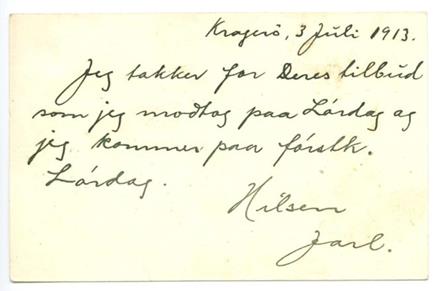 Kragerö, 3 Juli 1913.
Jeg takker for Deres tilbud
som jeg modtog paa Lórdag og
jeg kommer paa fórstk.
Lórdag.
Hilsen
Jarl.